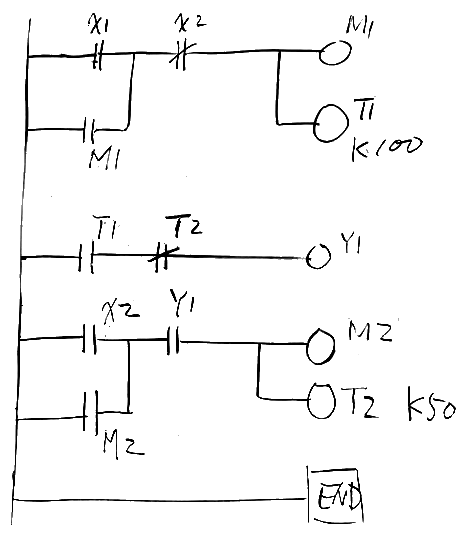 X1 X2 M1
T1
M1 K100
T1 T2 Y1
X2 Y1 M2
T2 K50
M2
END